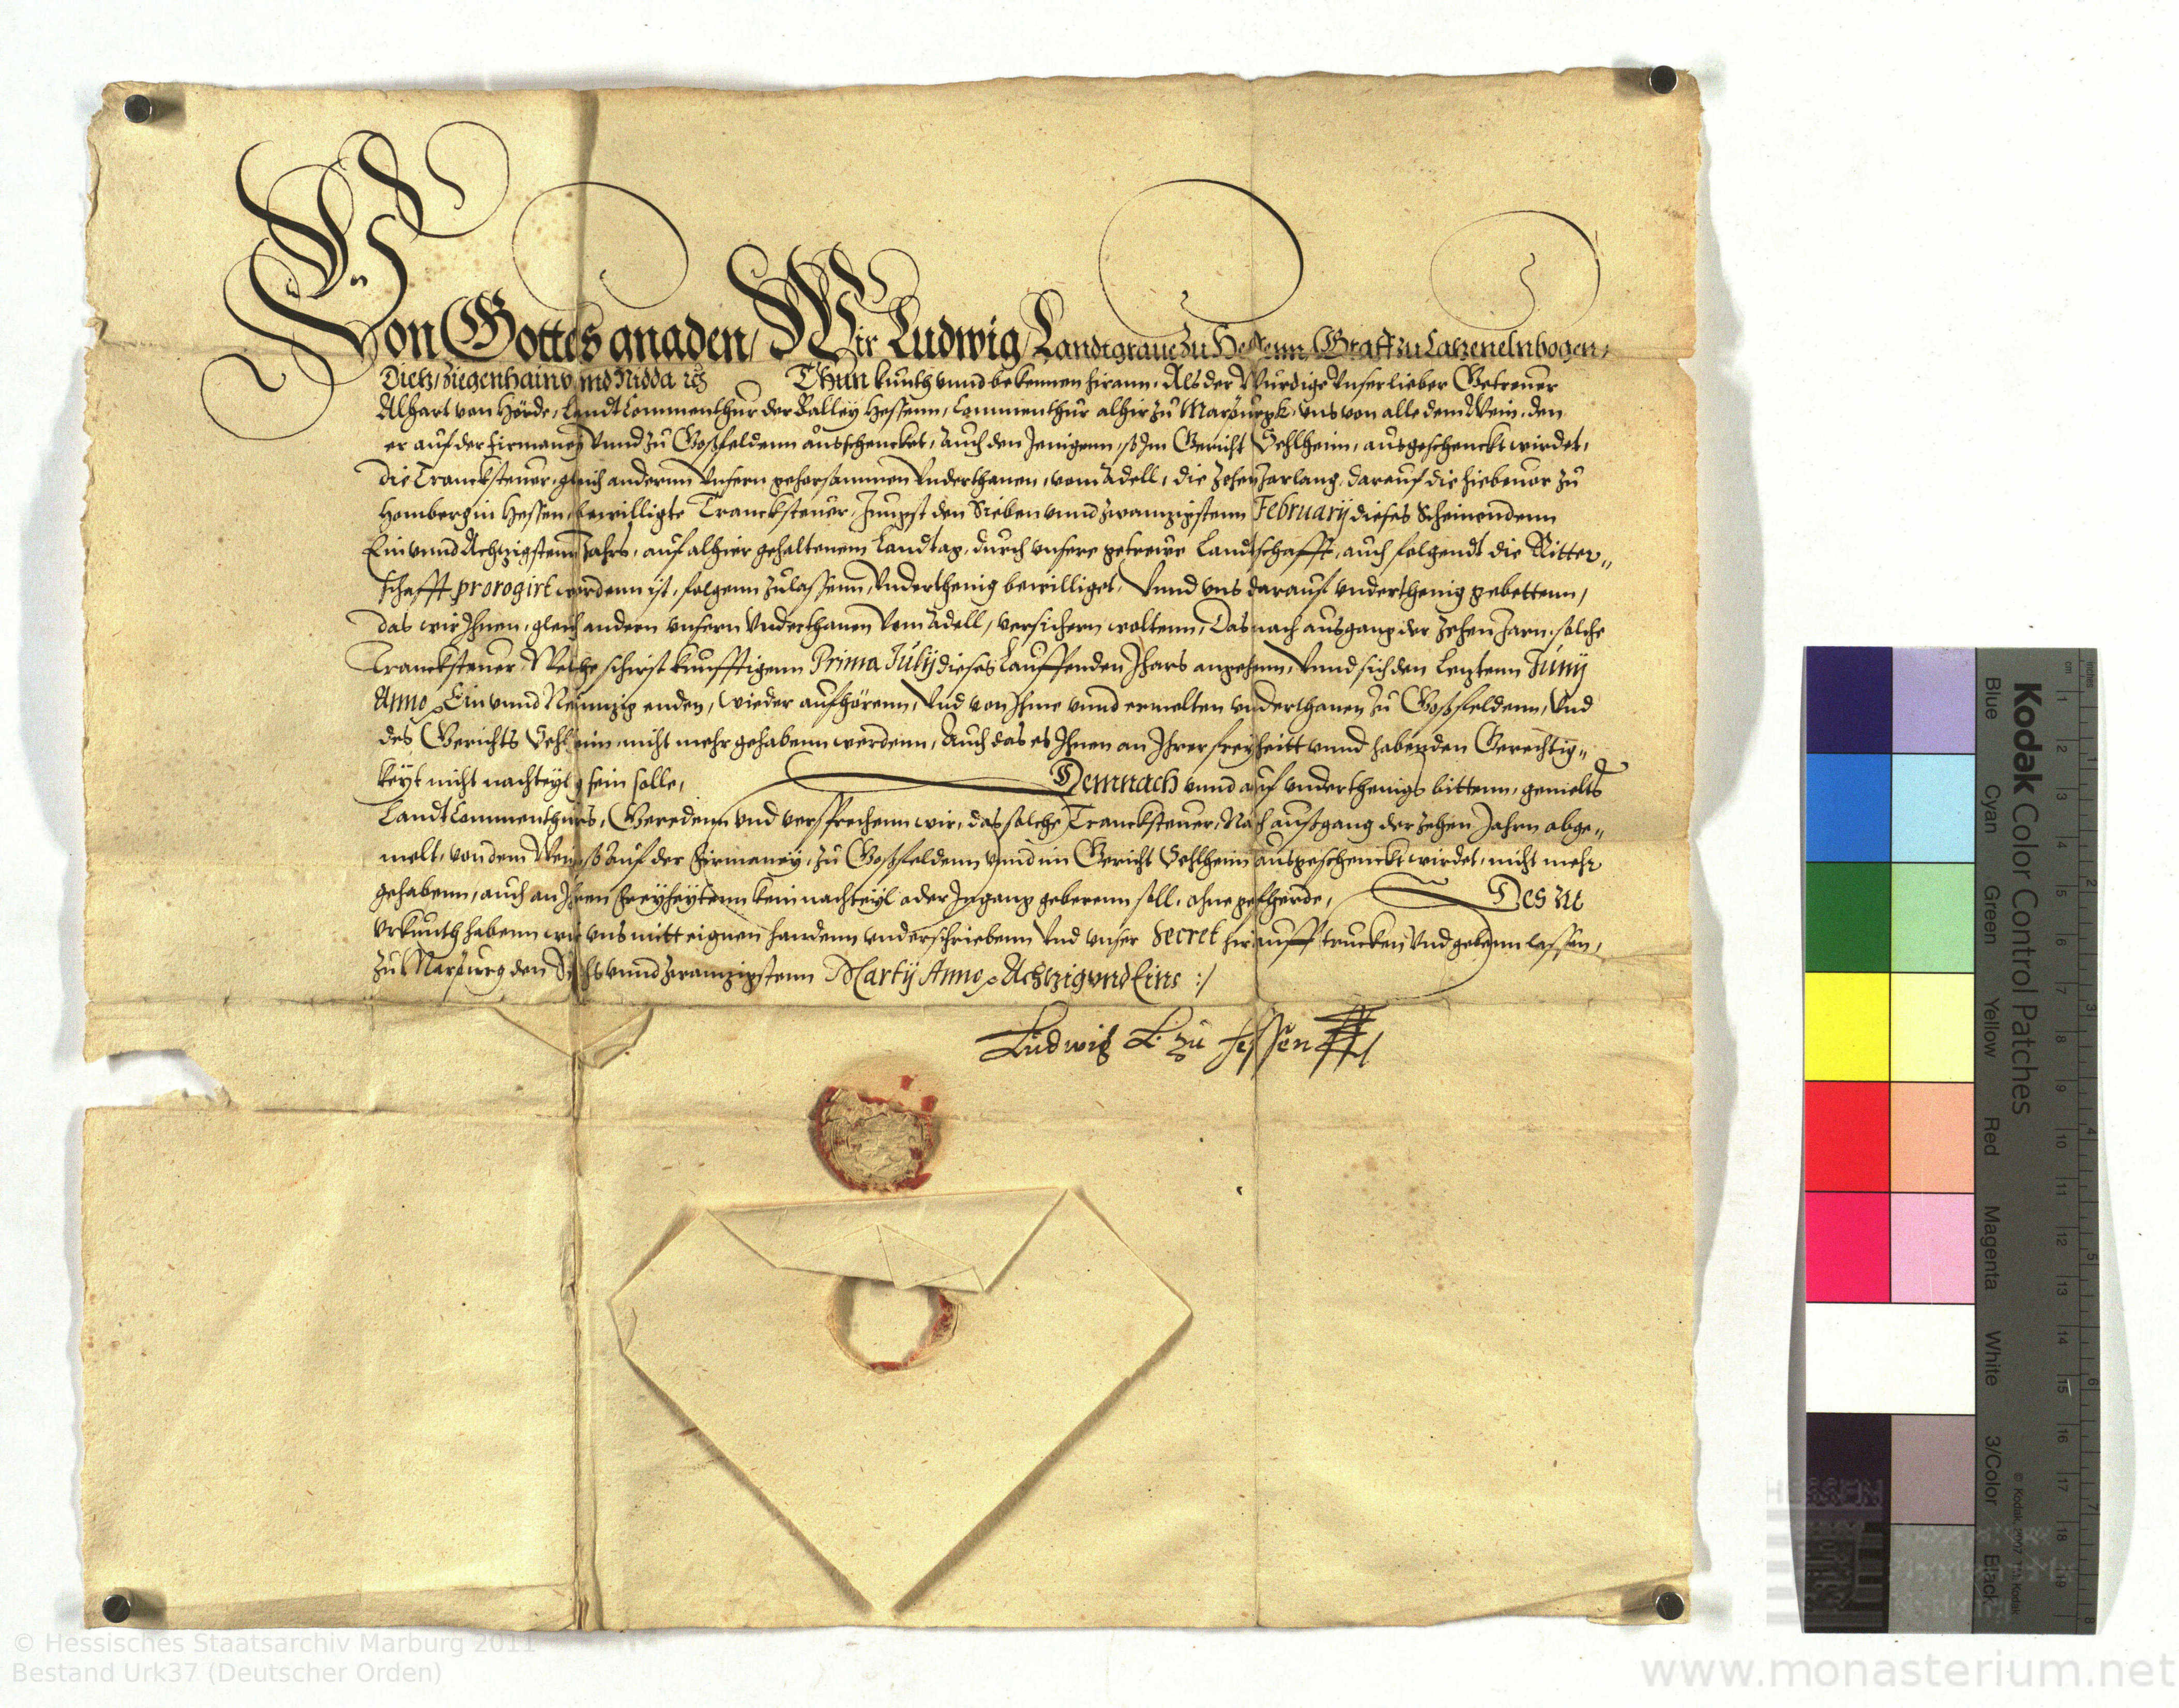 Von Gottes gnaden, Wir Ludwig, Landtgraue zu Hessenn, Graff zu Catzenelnbogen,
Dietz, Ziegenhain vnnd Nidda ec Thun kunth vnnd bekennen hirann, Als der Würdige Vnser lieber Getreuer
Alhart von Hörde, Landt Commenthur der Balley Hessenn, Commenthur alhir zu Marpurgk, vns von alle dem Wein, den
er auf der Firmaney Vnnd zu Goßfeldenn ausschencket, Auch den Jenigenn, so Im Gericht Sehlheim, ausgeschenckt wirdet,
die Tranckstener, gleich andernn Vnsern gehorsammen Vnderthanen, vom Adell, die Zehen Jarlang, darauf die hiebeuor zu
Homberg in Hessen bewilligte Tranckstener, Jungst den Sieben vnnd zwanzigstenn February dieses Scheinendenn
Ein vnnd Achtzigstenn Jahrs, auf alhier gehaltenem Landtag, durch vnsere getrewe Landtschafft, auch folgendt die Ritter„
schafft prorogirt wordenn ist, folgenn zulassenn, Vnderthenig bewilliget, Vnnd vns darauf vnderthenig gebettenn,
das wir Ihnen, gleich andern vnsern Vnderthanen Vom Adell, versichern woltenn, Das nach ausgang der Zehen Jarn, solche
Tranckstener, Welche schirst kunfftigenn Prima Julij dieses Lauffenden Jhars angehenn, Vnnd sich den Letztenn Juny
Anno Ein vnnd Neunzig enden, wieder aufhörenn, Vnd von Ihme vnnd ermelten vnderthanen zu Goßfeldenn, Vnd
des Gerichts Sehlheim nicht mehr gehabenn werdenn, Auch das es Ihnen an Ihrer freyheitt vnnd habenden Gerechtig„
keyt nicht nachteylig sein solle, Demnach vnnd auf vnderthenigs bittenn, gemelts
Landt Commenthurs, Geredenn vnd versprechenn wir, das solche Tranckstener, Nach außgang der zehen Jahrn obge„
melt, von dem Wein so auf der Firmaney, zu Goßfeldenn vnnd im Gericht Sehlheim ausgeschenckt wirdet, nicht mehr
gehabenn, auch an Ihren Freyheytenn kein nachteyl oder Ingang geberenn soll, ohne gefherde, Des zu
Vrkunth habenn wir vns mitt eignen handenn vnderschriebenn Vnd vnser Secret hirauff trucken Vnd gebenn lassen,
Zu Marpurg den Sechs vnnd zwanzigstenn Martij Anno Achtzig vnd Eins :/
Ludwig L. zu Hessen
Kodak Color Control Patches
Blue Cyan Green Yellow Red Magenta White 3/Color Black
© Hessisches Staatsarchiv Marburg 2011
Bestand Urk37 (Deutscher Orden)
www.monasterium.net